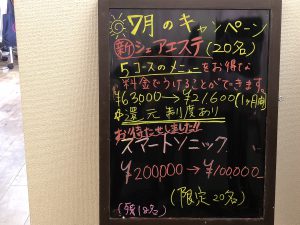 7月のキャンペーン
新シェアエステ(20名)
5コースのメニューをお得な
料金でうけることができます。
¥63000→¥21,600(1ヶ月間)
還元制度あり
お待たせしました!!
スマートソニック
¥200000→¥100000
(限定20名)
(残18名)